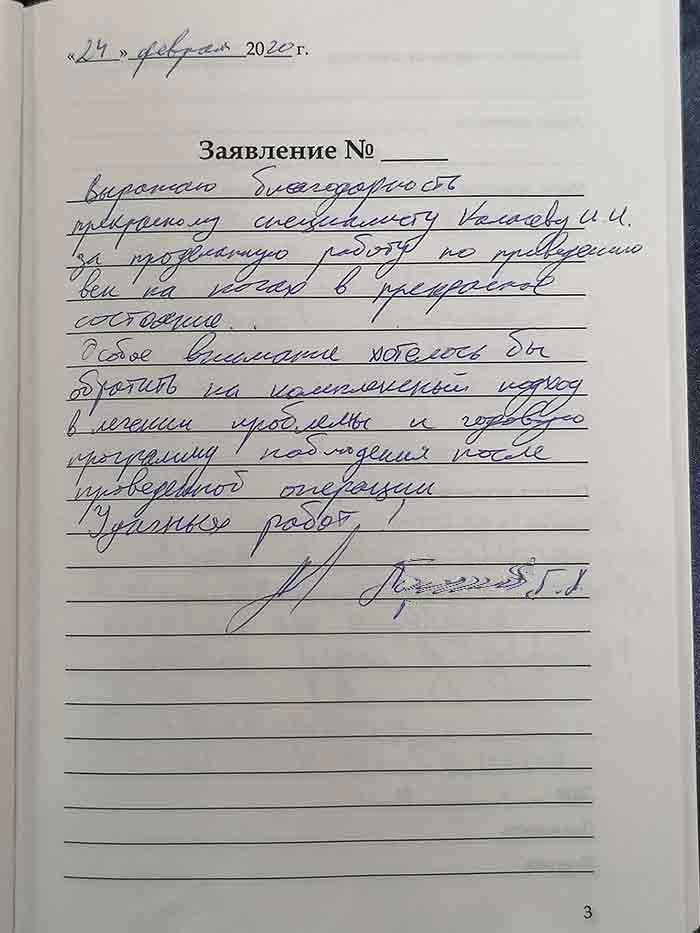 « 24 » февраля 2020 г.
Заявление № ____
Выражаю благодарность
прекрасному специалисту И.И.
за проделанную работу по приведению
вен на ногах в прекрасное
состояние...
Особое внимание хотелось бы
обратить на комплексный подход
в лечении проблемы и годовую
программу наблюдения после
проведенной операции
Удачных работ!
3